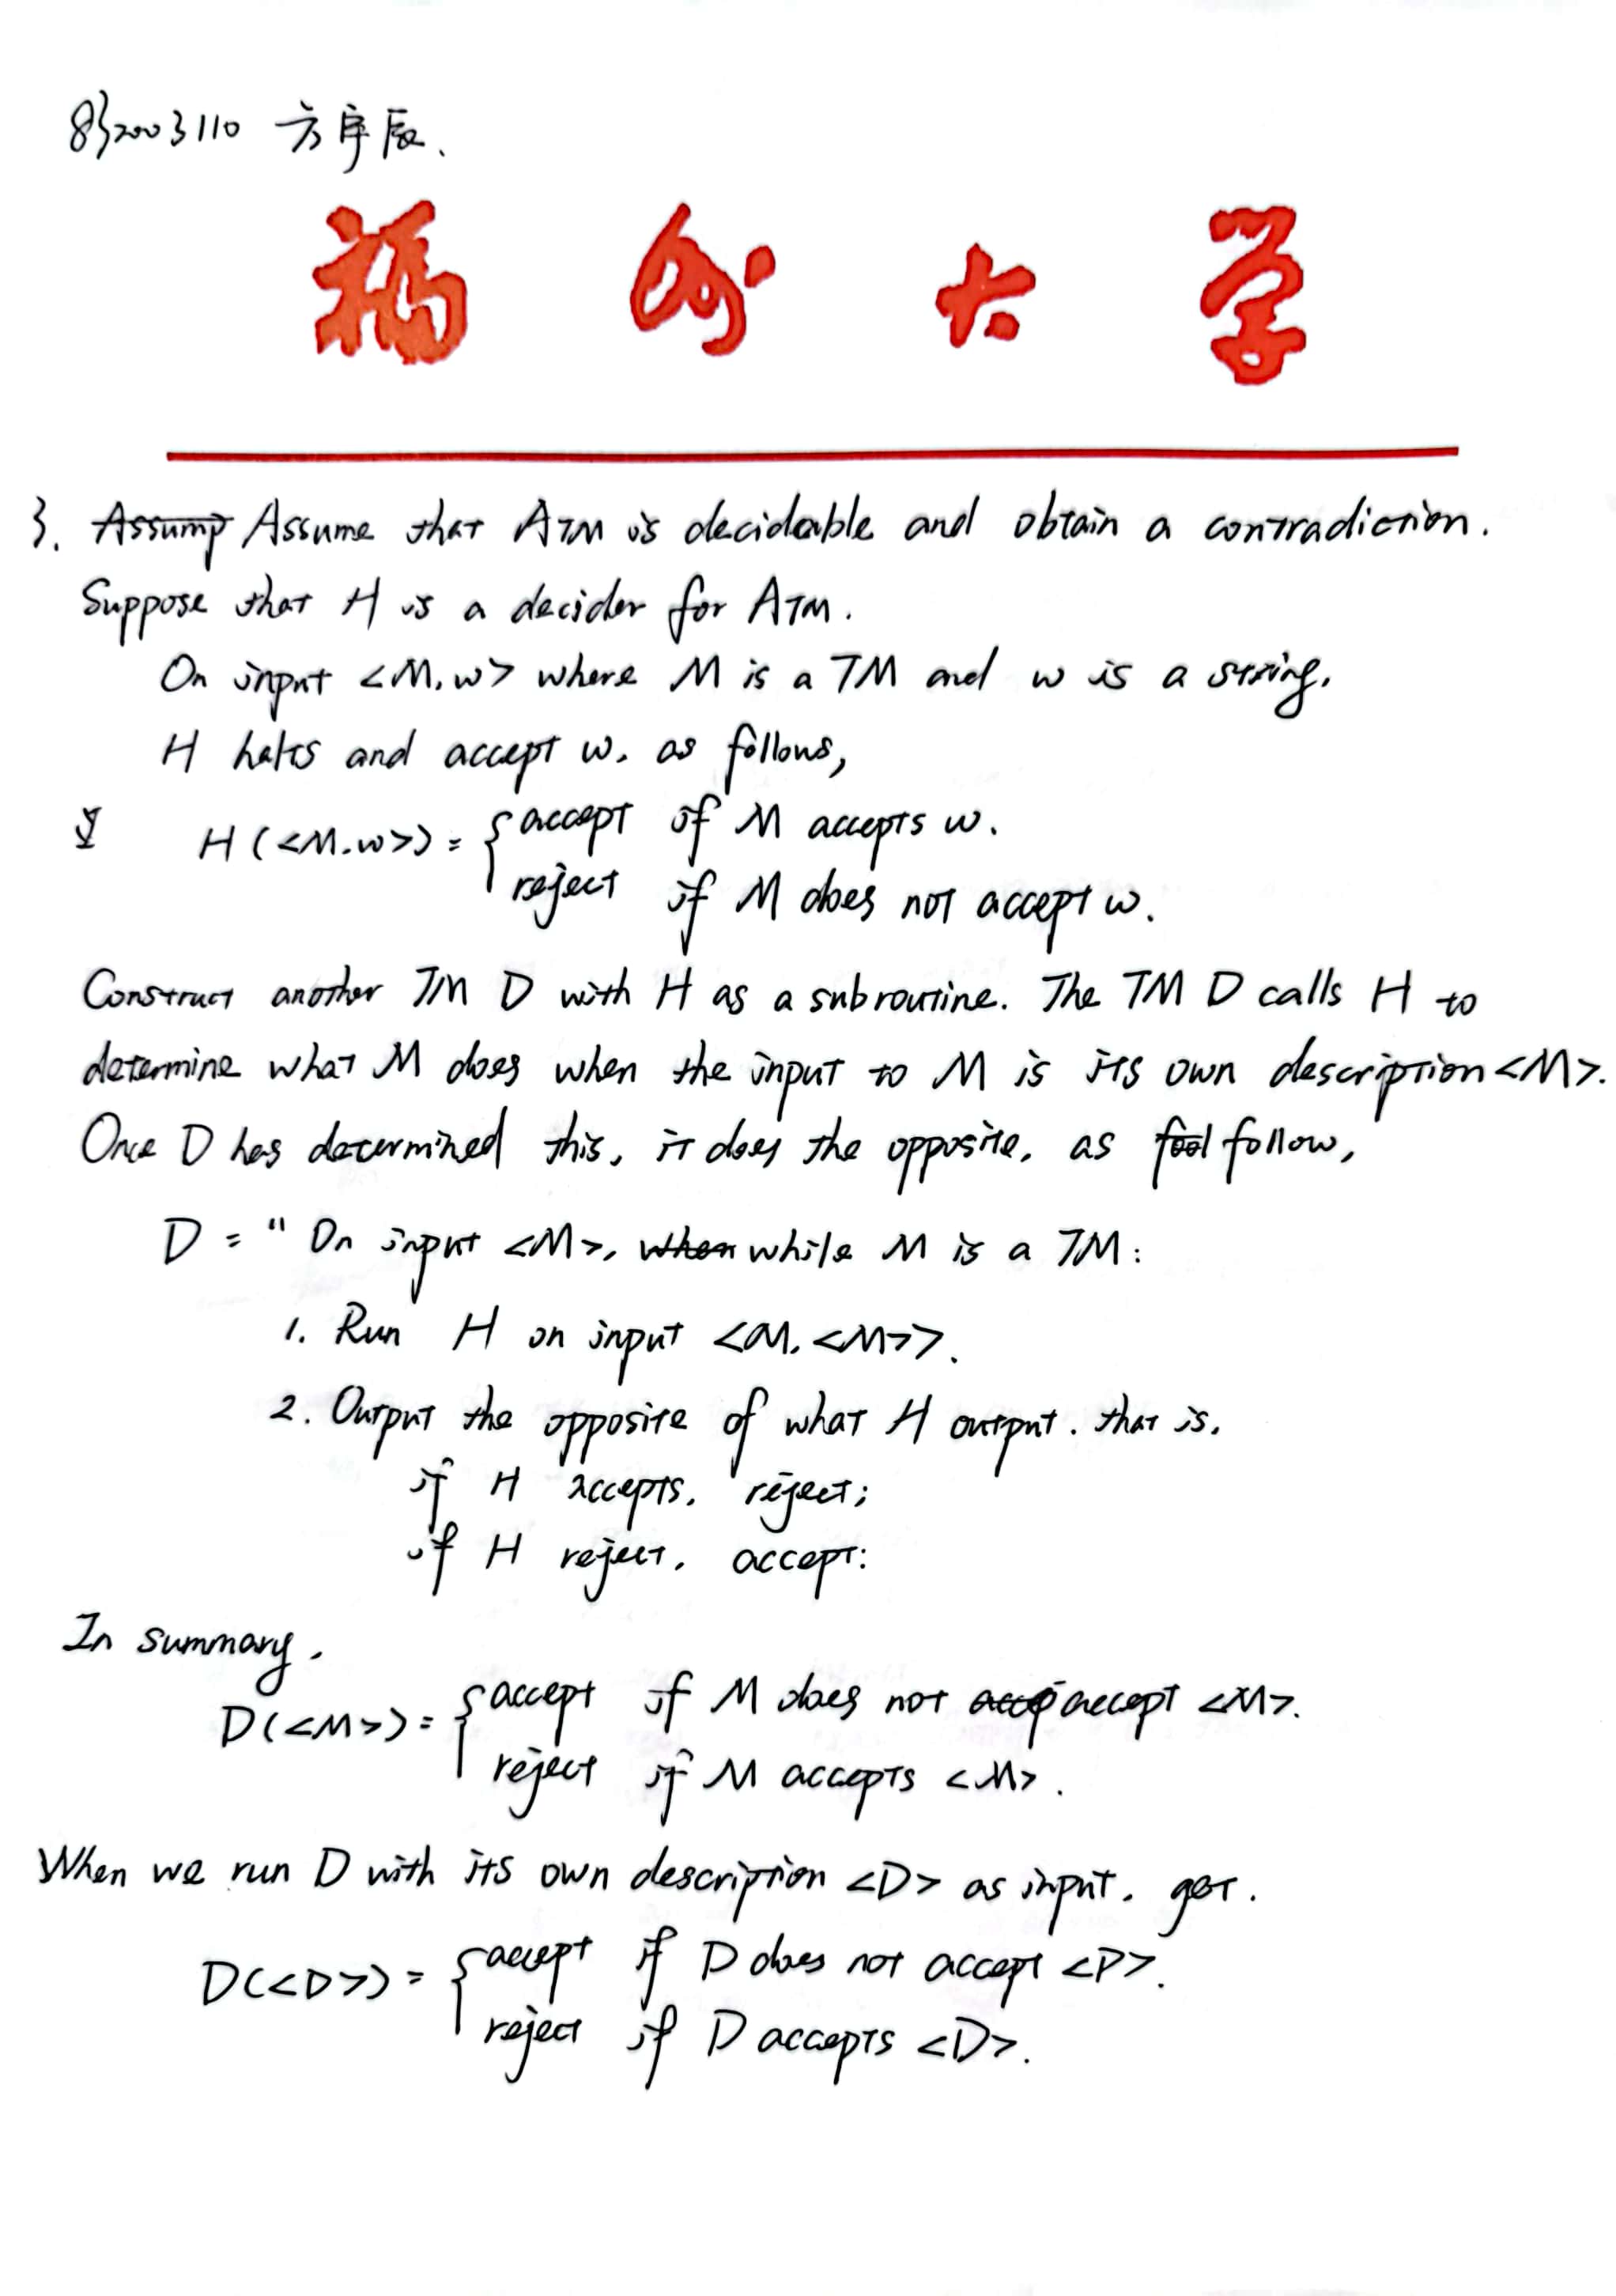 832003110 方宇辰.
福州大学
3. Assump Assume that ATM is decidable and obtain a contradiction.
Suppose that H is a decider for ATM.
On input <M,w> where M is a TM and w is a string,
H halts and accept w, as follows,
H(<M,w>) = { accept if M accepts w.
reject if M does not accept w.
Construct another TM D with H as a subroutine. The TM D calls H to
determine what M does when the input to M is its own description <M>.
Once D has determined this, it does the opposite, as follow,
D = " On input <M>, when while M is a TM:
1. Run H on input <M, <M>>.
2. Output the opposite of what H output. that is,
if H accepts, reject;
if H reject, accept:
In summary,
D(<M>) = { accept if M does not accept <M>.
reject if M accepts <M>.
When we run D with its own description <D> as input, get.
D(<D>) = { accept if D does not accept <D>.
reject if D accepts <D>.